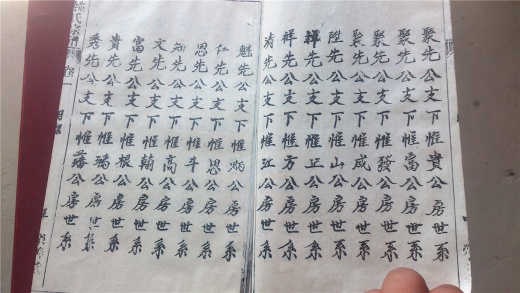 聚先公支下惟貴公房世系
聚先公支下惟富公房世系
聚先公支下惟發公房世系
聚先公支下惟成公房世系
陞先公支下惟山公房世系
祥先公支下惟正公房世系
祥先公支下惟方公房世系
清先公支下惟江公房世系
魁先公支下惟炳公房世系
仁先公支下惟恩公房世系
思先公支下惟斗公房世系
知先公支下惟高公房世系
文先公支下惟翰公房世系
富先公支下惟根公房世系
貴先公支下惟瑞公房世系
秀先公支下惟藩公房世系